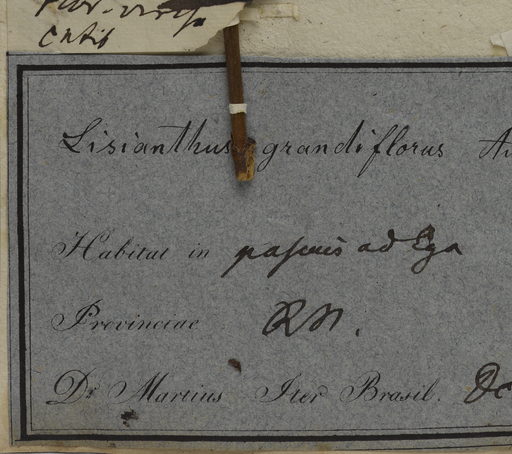 catis
Lisianthus grandiflorus
Habitat in pascuis ad Ega
Provinciae RN.
Dr Martius Iter Brasil.